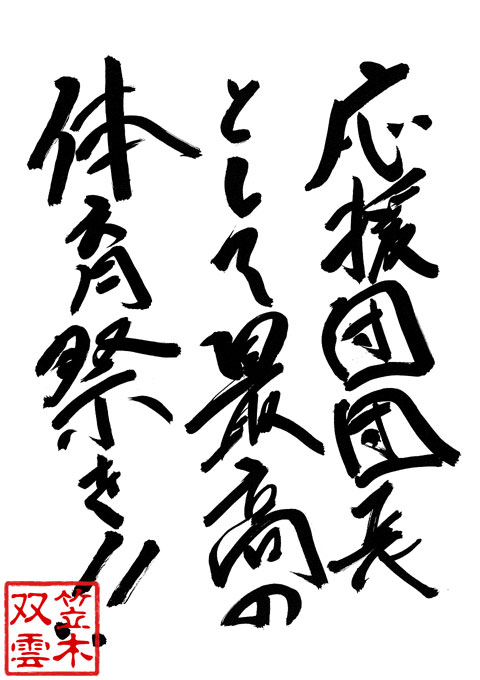 応援団団長
として最高の
体育祭を!!
笠木
双雲